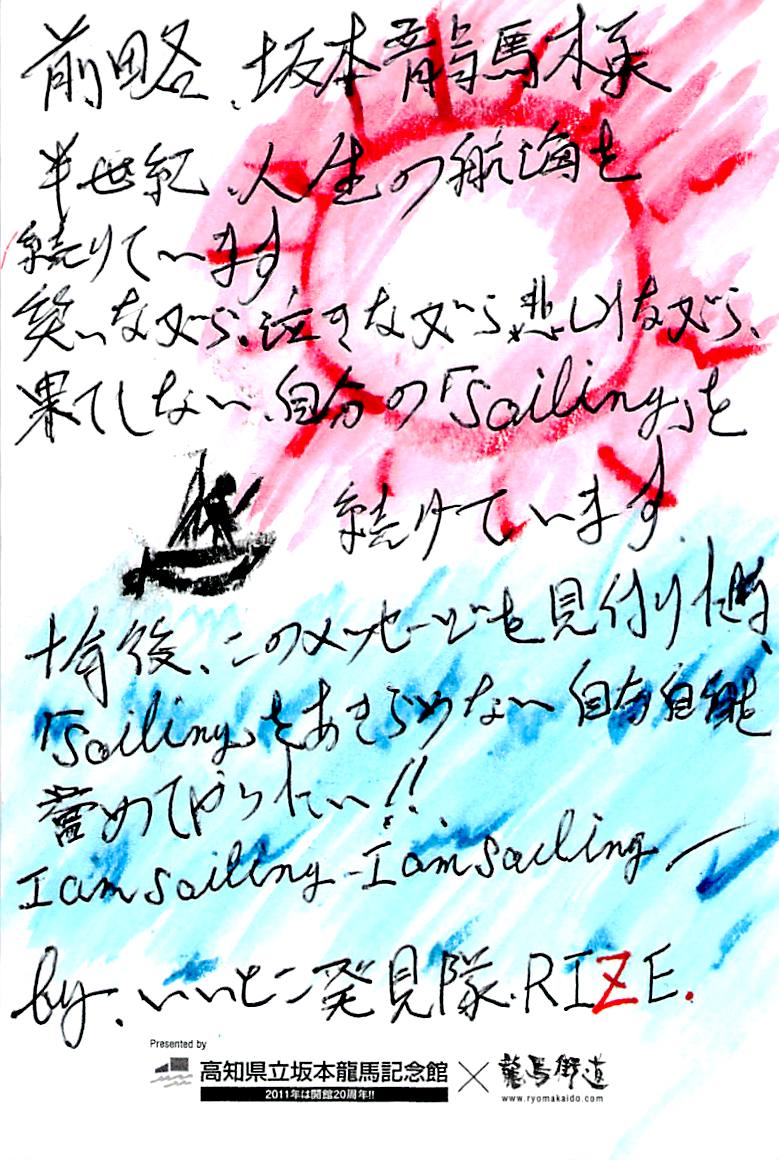 前略、坂本龍馬様
半世紀、人生の航海を
続けています
笑いながら、泣きながら、悲しみながら、
果てしない、自分の「Sailing」を
続けています
十年後、このメッセージを見付けた時、
「Sailing」をあきらめない自分自身を
誉めてやりたい!!
I am sailing - I am sailing ー
by.いいとこ発見隊.RIZE.
Presented by
高知県立坂本龍馬記念館×龍馬街道
2011年は開館20周年!!
www.ryomakaido.com